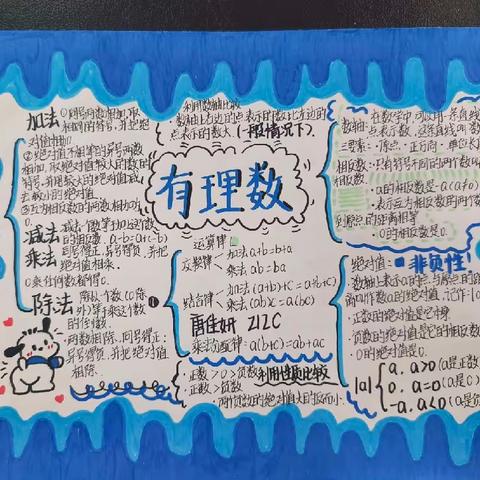 加法 ①同号两数相加,取
相同的符号,并把绝
对值相加
②绝对值不相等的异号两数
相加,取绝对值较大的数的
符号,并用较大的绝对值减
去较小的绝对值.
③互为相反数的两数相加为
0.
减法 减去一个数等于加上这个数
的相反数. a-b=a+(-b)
乘法 同号得正,异号得负,并把
绝对值相乘.
0乘任何数都得0
除法 除以一个数(0除
外)等于乘这个数
的倒数.
两数相除,同号得正,
异号得负,并把绝对值
相除.
利用数轴比较
数轴上右边的点表示的数比左边的
点表示的数大(一般情况下).
有理数
运算律
交换律 加法 a+b=b+a
乘法 ab=ba
结合律 加法(a+b)+c=a+(b+c)
乘法(ab)c=a(bc)
212C
乘法分配律:a(b+c)=ab+ac
正数>0>负数 利用性质比较
正数>负数
两个负数的绝对值大的反而小.
数轴: 在数学中,可以用一条直线
上的点表示数,这条直线叫数
三要素:原点、正方向、单位长
相反数:只有符号不同的两个数
相反数.
a的相反数是-a(a≠0)
表示互为相反数的两个
到原点的距离相等
0的相反数是0.
绝对值: 非负性!
数轴上表示a的点与原点的
离叫作数a的绝对值,记作|a
正数的绝对值是它本身
负数的绝对值是它的相反数
0的绝对值是0.
|a| a. a>0 (a是正数
0. a=0 (a是0)
-a. a<0 (a是负